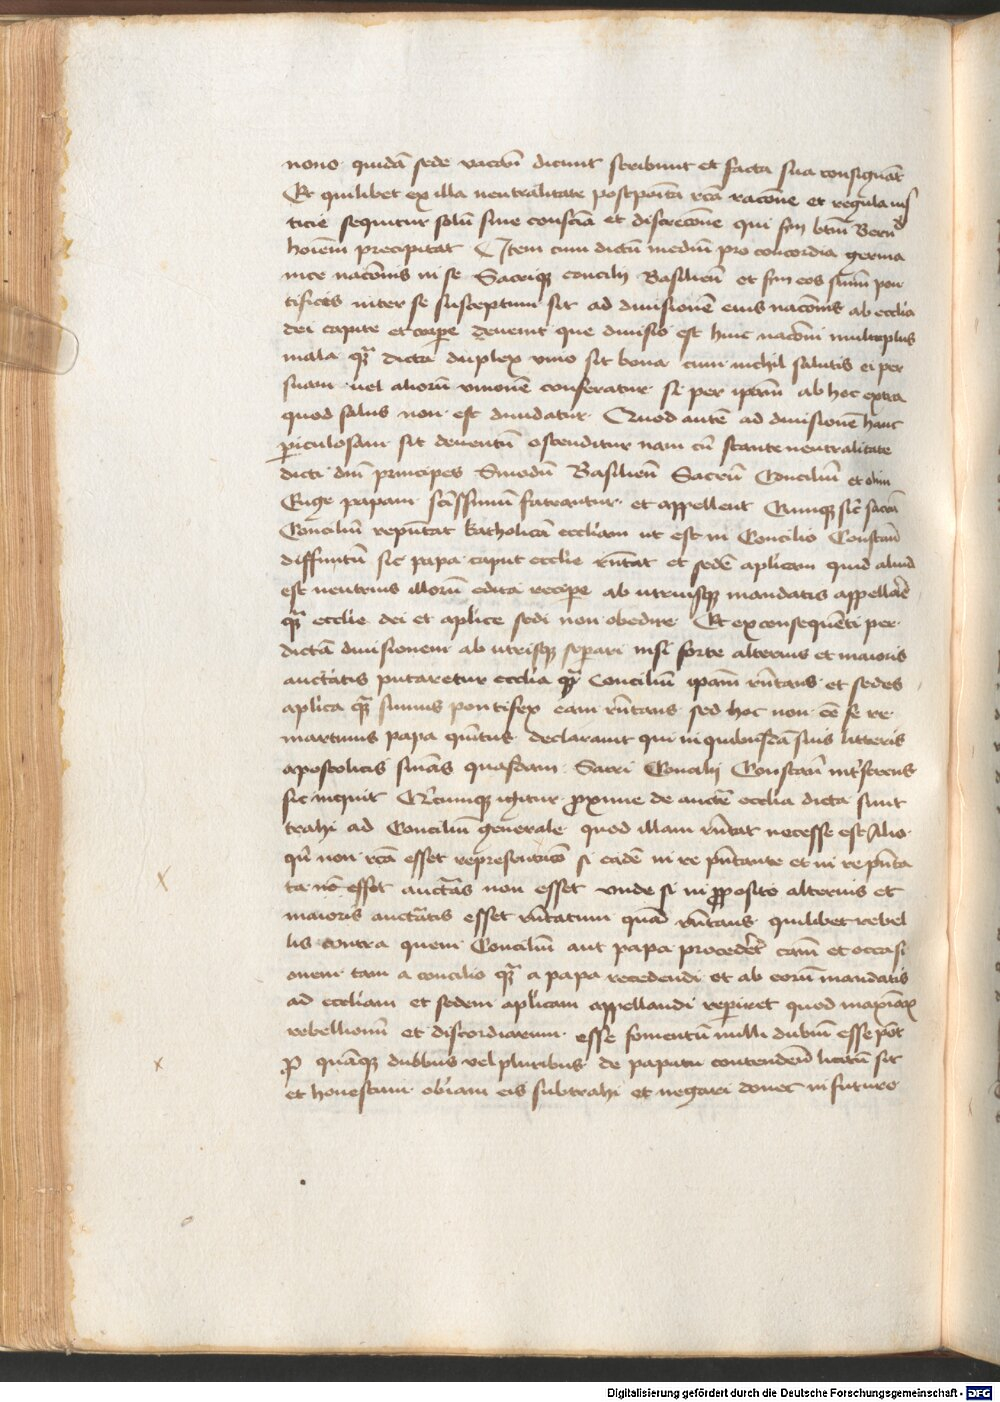 nono quidā sede vacan̄ dicunt scribunt et facta sua consignāt
Et quilibet ex illa neutralitate postpoīta rcā racōne et regula ius
ticie sequitur solū sine consciā et discrecōne qui scm btm̄ Bern̄
hoīem precipitat Item cum dictū mediū pro concordia germa
nice nacōnis in se Sacrique concilij Basilien̄ et scm eos sūm̄ pon
tificis inter se susceptum sit ad diuisionē eius nacōnis ab ecclīa
dei capite et corpore deuenit que diuisio est huic nacōni multiplus
mala qꝫ dicta duplex vnio sit bona cum nichil salutis ei per
suam uel aliorū vnionē conferatur si per ipam̄ ab hoc extra
quod salus non est diuidatur Quod autē ad diuisionē hanc
periculosam sit deuentū ostenditur nam cū stante neutralitate
dicti dm̄ principes Sinodū Basilien̄ Sacrū Conciliū et olim
Euge papam sctissimū fateantur et appellent Cumque sic sacrū
Conciliū repn̄tat katholicā eccliam ut est in Concilio Constan̄
diffinitū sic papa caput ecclie rn̄tat et sedē aplicam quid aliud
est neutrius illorū edicta recipe ab utriusque mandatis appellare
qꝫ ecclie dei et aplice sedi non obedire Et ex consequēti per
dictā diuisionem ab utrisque separi nisi forte alterius et maioris
auctātis putaretur ecclīa qꝫ Conciliū ipam̄ rn̄tans et sedes
aplica qꝫ sumus pontifex eam rn̄tans sed hoc non eē se re
martinus papa quītus declarauit qui in quibusdā suis litteris
apostolicis suīas quasdam Sacri Concilij Constan̄
sic inquit Cumque igitur proxime de auctē ecclia dicta sunt
trahi ad Conciliū generale quod illam rn̄tat necesse est Alio
qn̄ non rcā esset representacō si eadē in re pn̄tante et in re pn̄ta
ta nō esset auctās non esset vnde si in proposito alterius et
maioris auctātis esset rn̄tatum quā rn̄tans quilibet rebel
lis contra quem Conciliū aut papa procederet cām̄ et occasi
onem tam a concilio qꝫ a papa recedendi et ab eorū mandatis
ad eccliam et sedem aplicam appellandi reperiret quod maximōꝝ
rebellionū et discordiarum esse fomentū nulli dubiū esse pōt
quāque duobus vel pluribus de papatu contenden̄ licitū sit
et honestum obiam eis subtrahi et negari donec in futuro
Digitalisierung gefördert durch die Deutsche Forschungsgemeinschaft - DFG